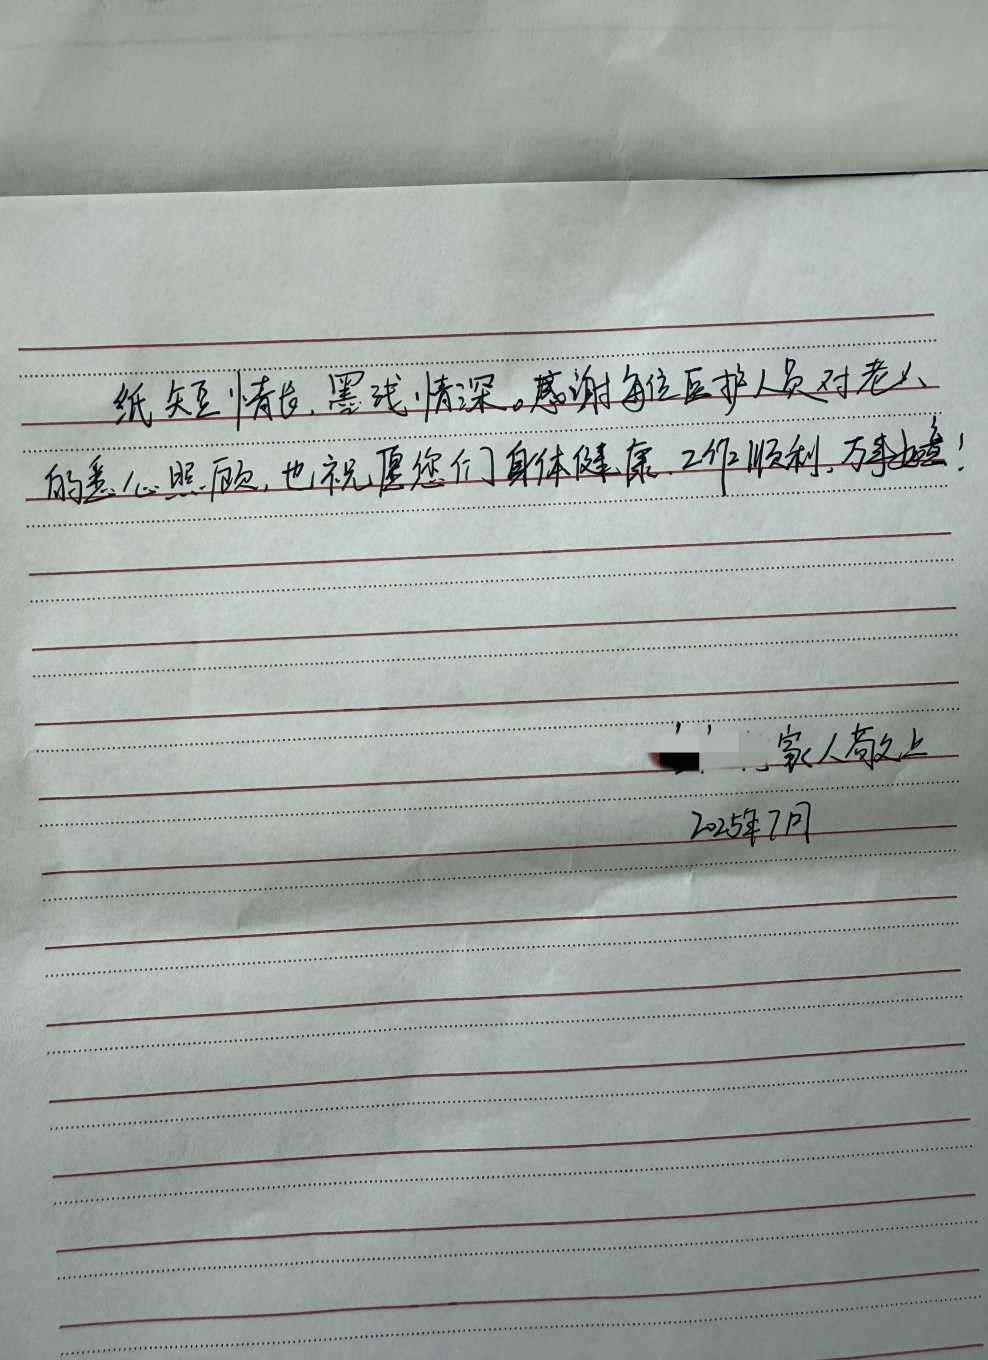 纸短情长，墨浅情深。感谢每位医护人员对老人
的悉心照顾，也祝愿您们身体健康、工作顺利，万事如意！
家人敬上
2025年7月